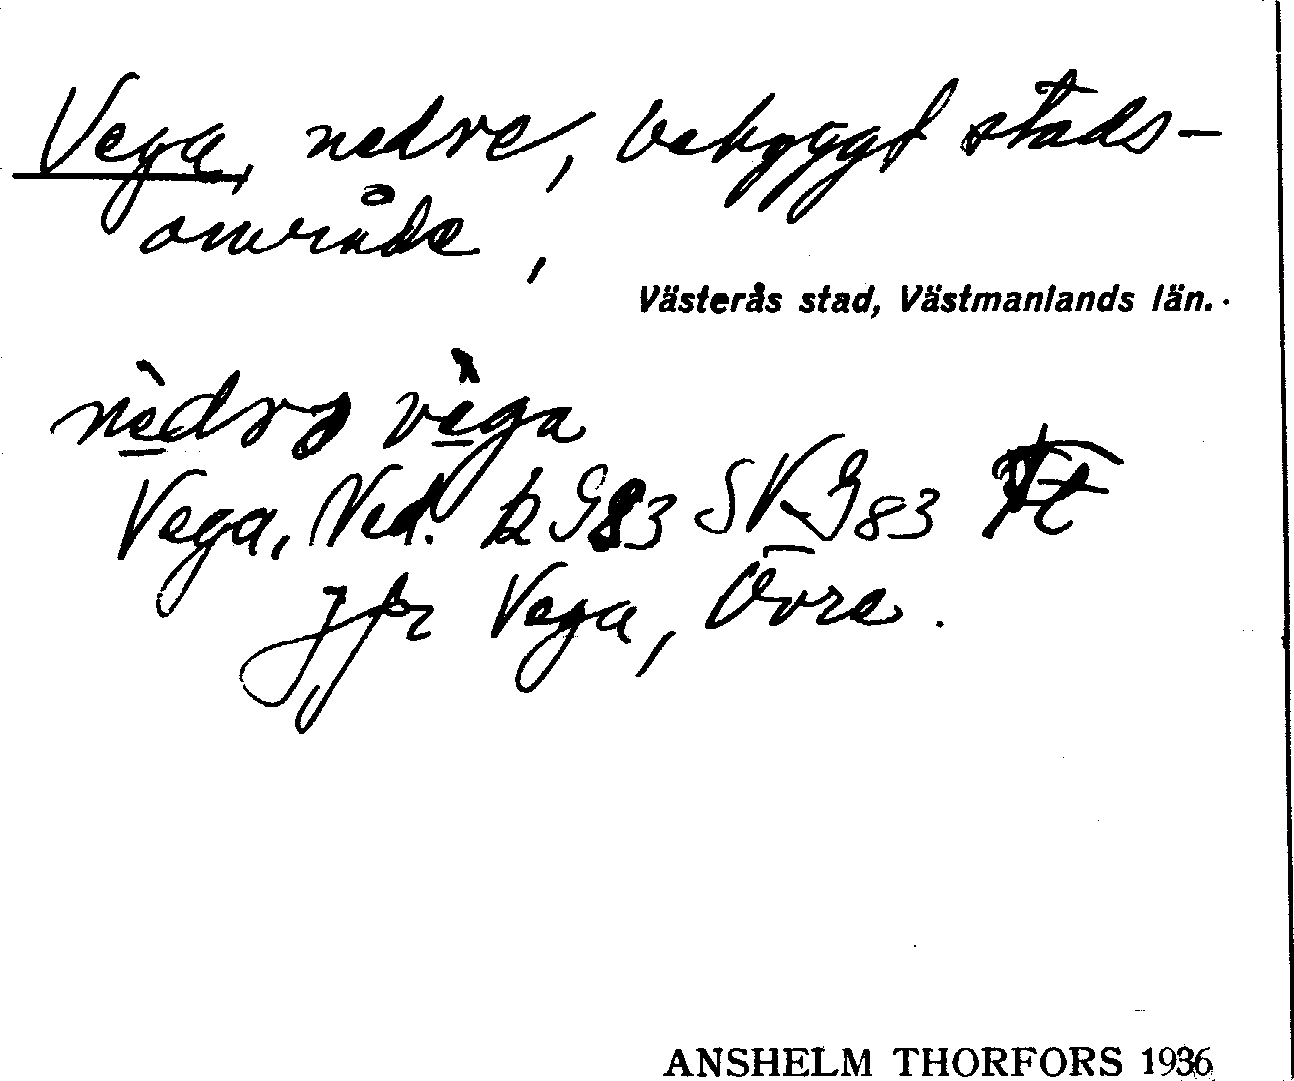 Vega, nedre, bebyggt stads-
område,
Västerås stad, Västmanlands län.
nèdrə vèga
Vega, Ned. k G83 SV G83
Jfr Vega, Övre.
ANSHELM THORFORS 1936